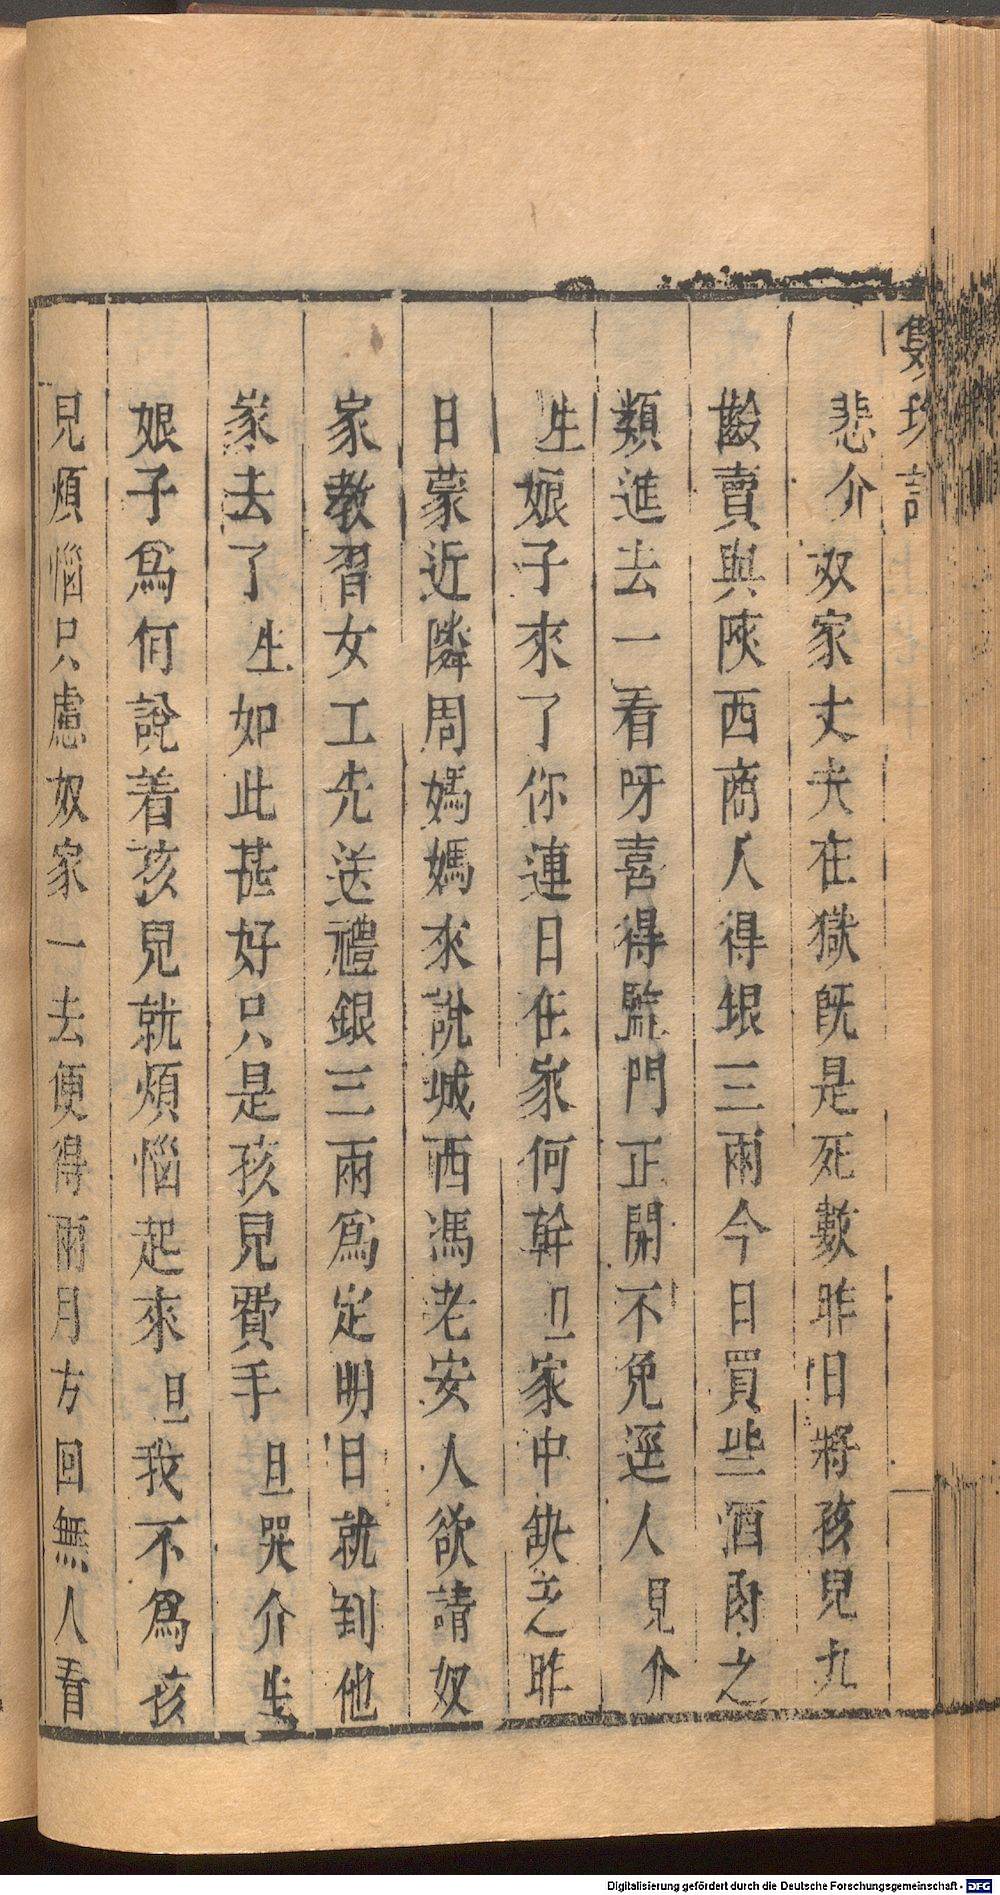 雙珠記
悲介奴家丈夫在獄旣是死數昨日將孩兒九
齡賣與陝西商人得銀三兩今日買些酒肉之
類進去一看呀喜得監門正開不免逕入見介
生娘子來了你連日在家何幹旦家中缺乏昨
日蒙近隣周媽媽來說城西馮老安人欲請奴
家教習女工先送禮銀三兩爲定明日就到他
家去了生如此甚好只是孩兒費手旦哭介生
娘子爲何說着孩兒就煩惱起來旦我不爲孩
兒煩惱只慮奴家一去便得兩月方回無人看
Digitalisierung gefördert durch die Deutsche Forschungsgemeinschaft - DFG